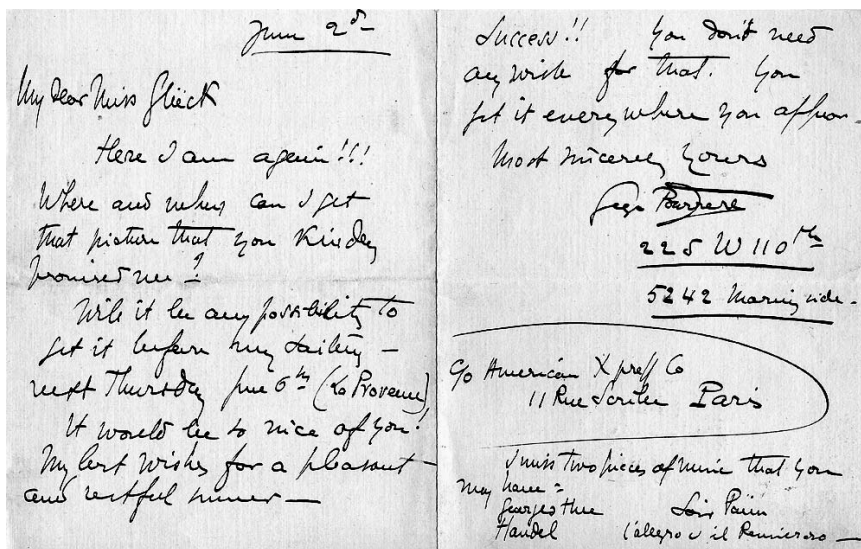 June 2d
My dear Miss Glück
Here I am again!!!
Where and when can I get
that picture that you kindly
promised me?
Will it be any possibility to
get it before my sailing –
next Thursday June 6th (La Provence)
It would be so nice of you!
My best wishes for a pleasant
and restful summer —
Success!! You don't need
any wish for that. You
get it everywhere you appear –
Most sincerely yours
Barrere
225 W 110th
5242 Morningside –
c/o American Xpress Co
11 Rue Scribe Paris
I miss two pieces of mine that you
may have =
Georges Hue Soir Païen
Handel l'allegro il Pensieroso —